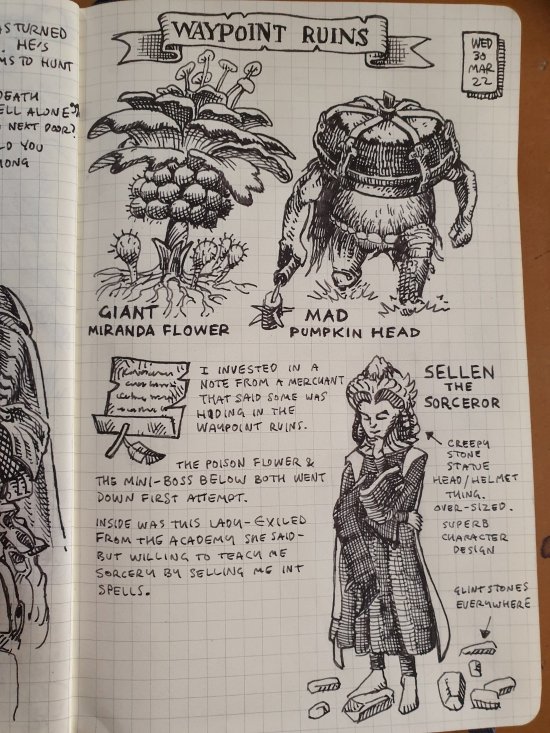 AS TURNED
. HE'S
MS TO HUNT
DEATH
ELL ALONE
NEXT DOOR?
LD YOU
MONG
WAYPOINT RUINS
WED
30
MAR
22
GIANT
MIRANDA FLOWER
MAD
PUMPKIN HEAD
I INVESTED IN A
NOTE FROM A MERCHANT
THAT SAID SOME WAS
HIDING IN THE
WAYPOINT RUINS.
THE POISON FLOWER &
THE MINI-BOSS BELOW BOTH WENT
DOWN FIRST ATTEMPT.
INSIDE WAS THIS LADY-EXILED
FROM THE ACADEMY SHE SAID-
BUT WILLING TO TEACH ME
SORCERY BY SELLING ME INT
SPELLS.
SELLEN
THE
SORCEROR
CREEPY
STONE
STATUE
HEAD/HELMET
THING.
OVER-SIZED.
SUPERB
CHARACTER
DESIGN
GLINTSTONES
EVERYWHERE